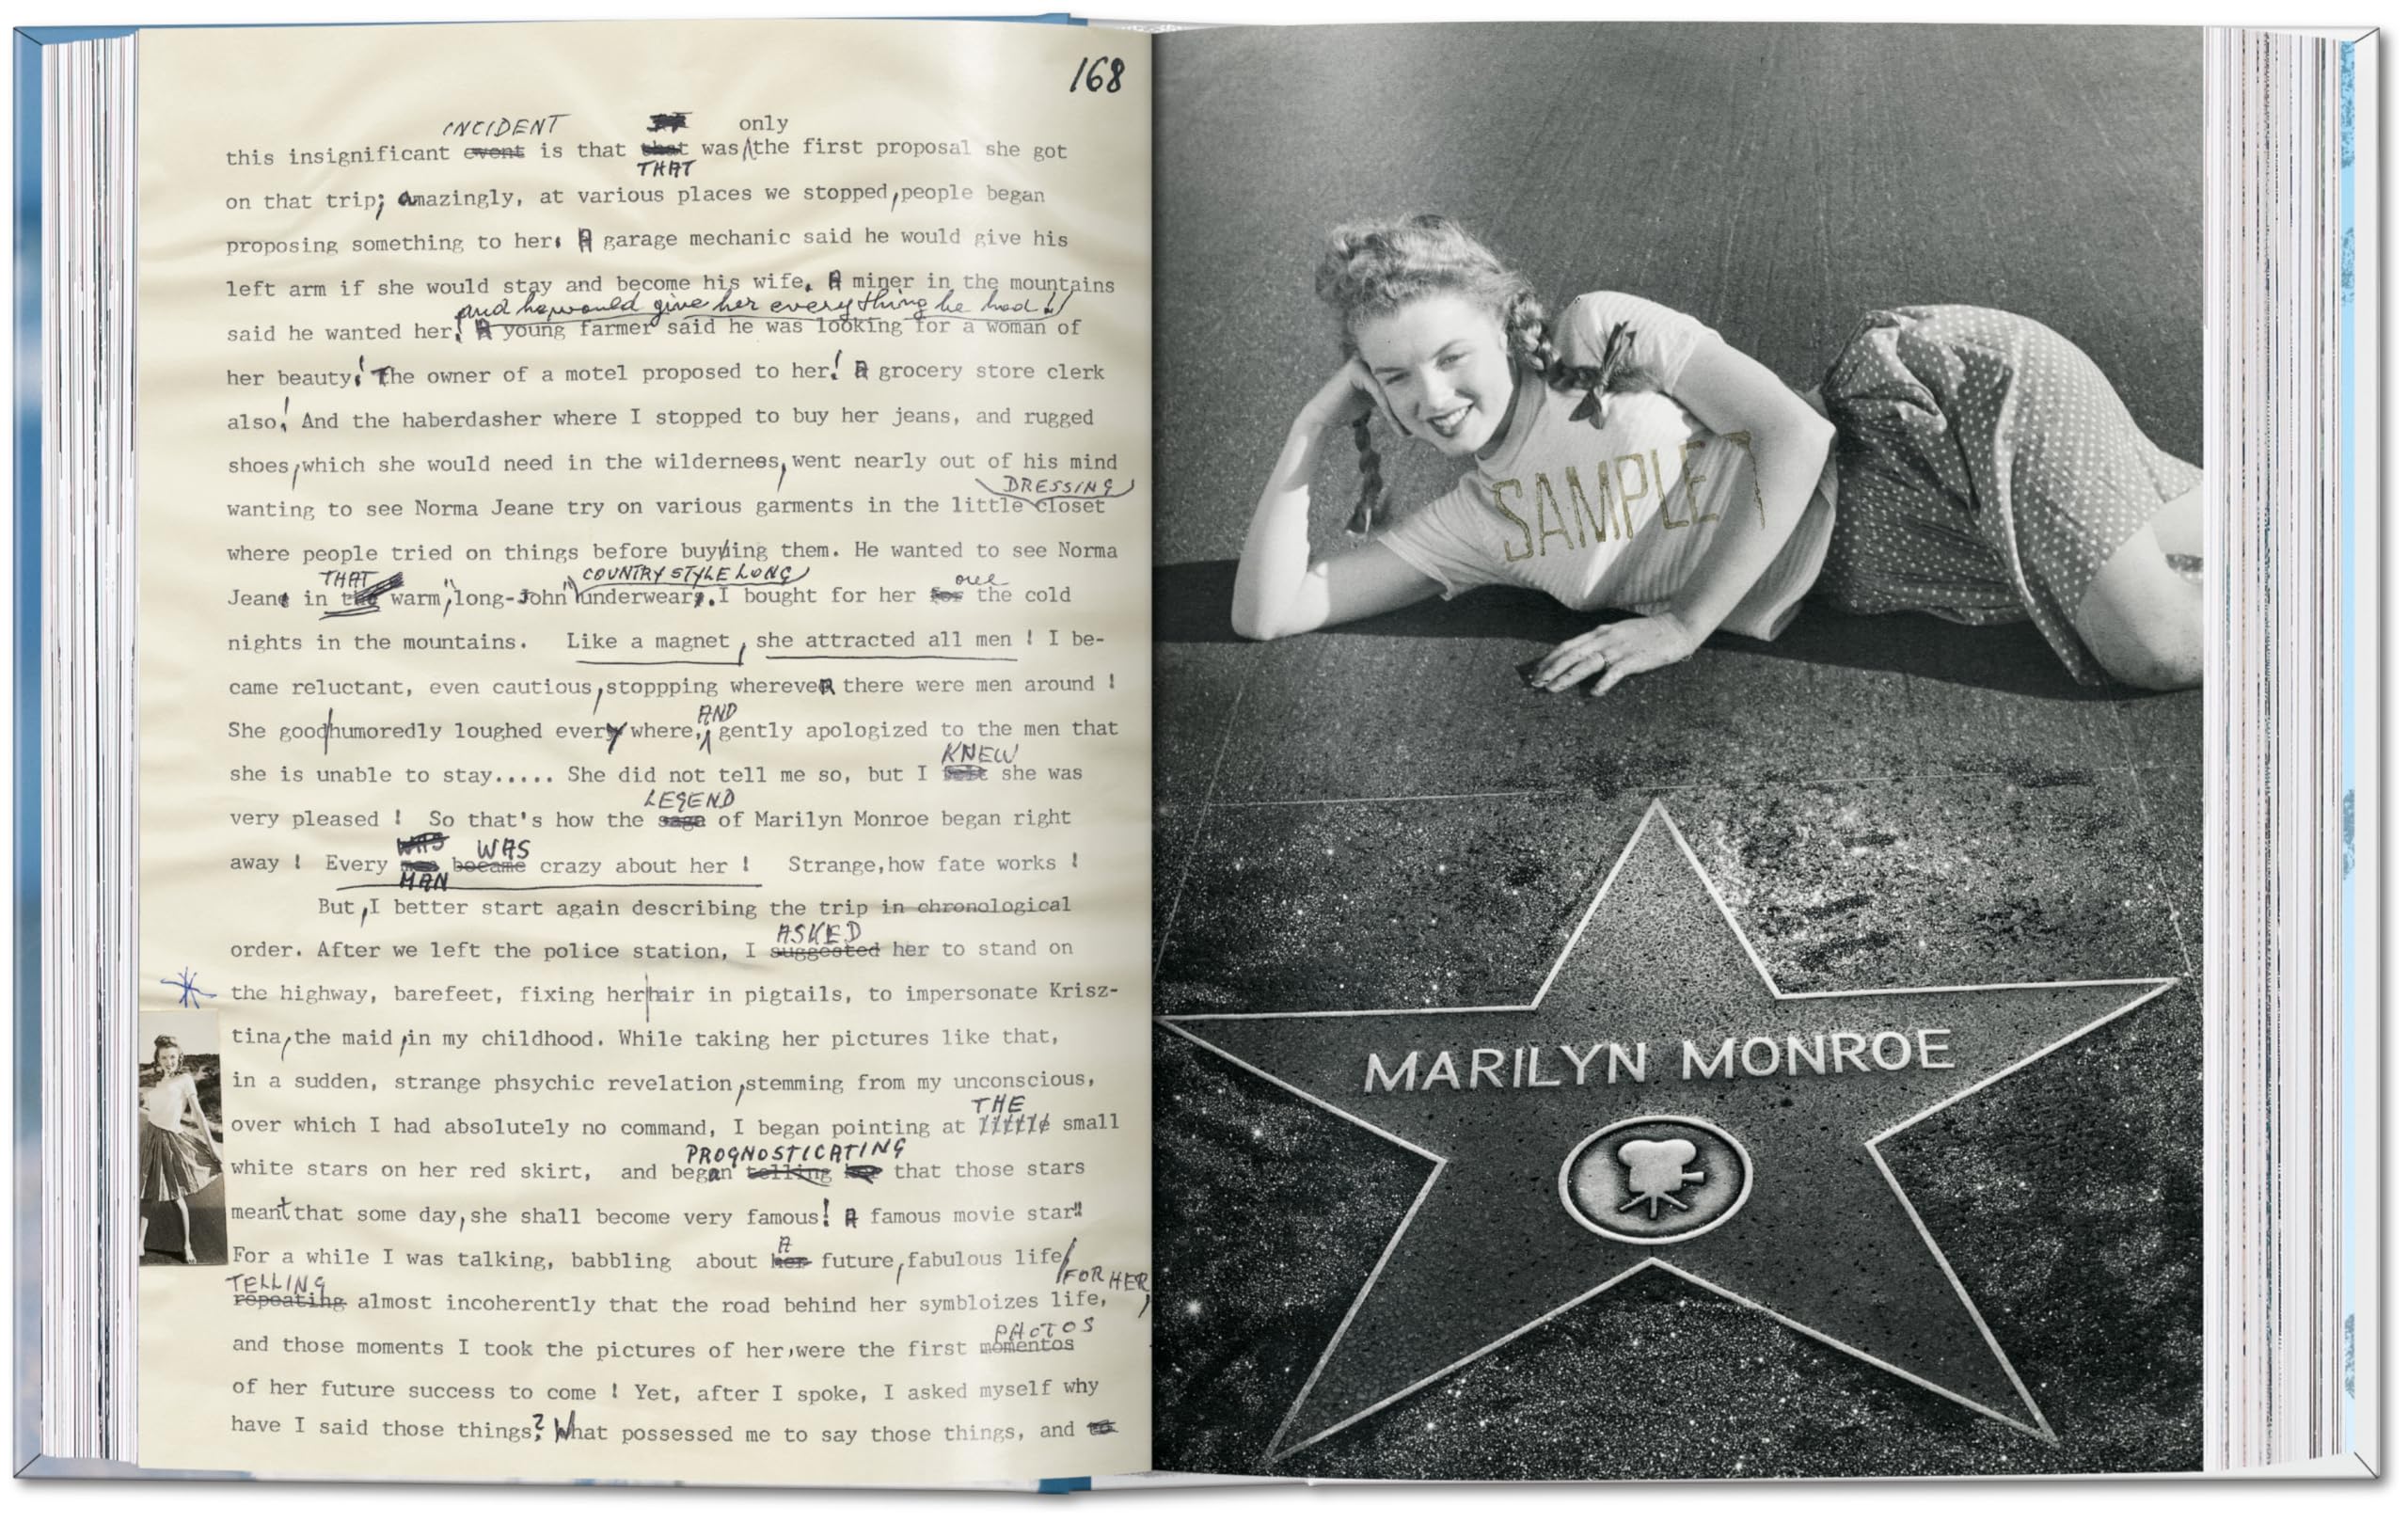 168
INCIDENT only
this insignificant event is that that was the first proposal she got
THAT
on that trip; amazingly, at various places we stopped, people began
proposing something to her: A garage mechanic said he would give his
left arm if she would stay and become his wife. A miner in the mountains
and he would give her everything he had!
said he wanted her! A young farmer said he was looking for a woman of
her beauty! The owner of a motel proposed to her! A grocery store clerk
also! And the haberdasher where I stopped to buy her jeans, and rugged
shoes, which she would need in the wildernees, went nearly out of his mind
DRESSING
wanting to see Norma Jeane try on various garments in the little closet
where people tried on things before buying them. He wanted to see Norma
THAT COUNTRY STYLE LONG
Jeane in the warm, "long-John" underwear. I bought for her for the cold
nights in the mountains. Like a magnet, she attracted all men ! I be-
came reluctant, even cautious, stoppping wherever there were men around !
AND
She goodhumoredly loughed every where, gently apologized to the men that
KNEW
she is unable to stay..... She did not tell me so, but I she was
LEGEND
very pleased ! So that's how the saga of Marilyn Monroe began right
WAS WAS
away ! Every became crazy about her ! Strange, how fate works !
MAN
But, I better start again describing the trip in chronological
ASKED
order. After we left the police station, I suggested her to stand on
the highway, barefeet, fixing her hair in pigtails, to impersonate Krisz-
tina, the maid, in my childhood. While taking her pictures like that,
in a sudden, strange phsychic revelation, stemming from my unconscious,
THE
over which I had absolutely no command, I began pointing at little small
PROGNOSTICATING
white stars on her red skirt, and began telling her that those stars
meant that some day, she shall become very famous! A famous movie star!!
A
For a while I was talking, babbling about her future, fabulous life
TELLING FOR HER,
repeating almost incoherently that the road behind her symbloizes life,
PHOTOS
and those moments I took the pictures of her, were the first momentos
of her future success to come ! Yet, after I spoke, I asked myself why
have I said those things? What possessed me to say those things, and to
SAMPLE
MARILYN MONROE